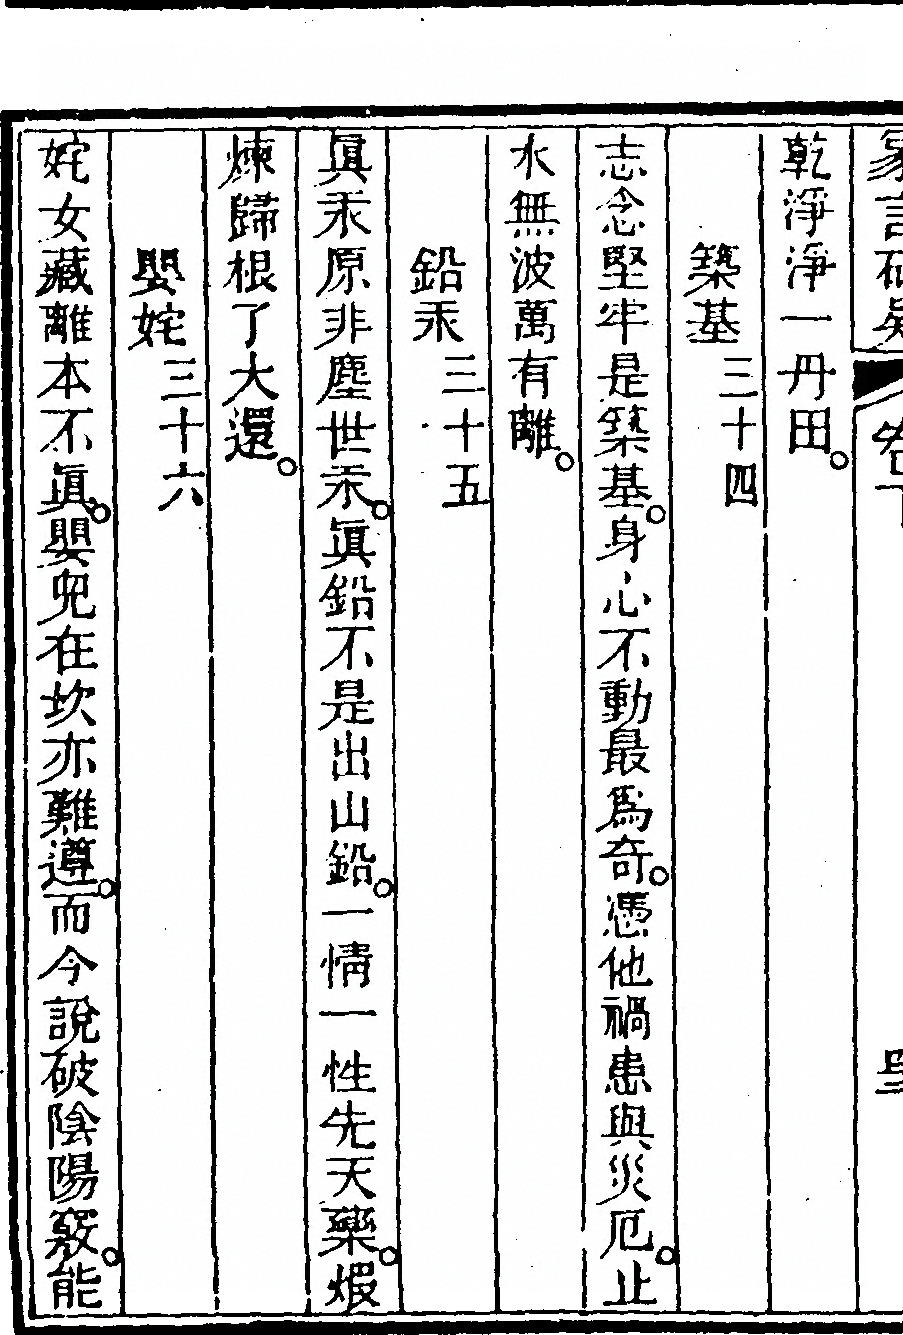 象言破疑 卷下
乾淨淨一丹田。
築基三十四
志念堅牢是築基。身心不動最爲奇。憑他禍患與災厄。止
水無波萬有離。
鉛汞三十五
眞汞原非塵世汞。眞鉛不是出山鉛。一情一性先天藥。煅
煉歸根了大還。
嬰姹三十六
姹女藏離本不眞。嬰兒在坎亦難遵。而今說破陰陽竅。能